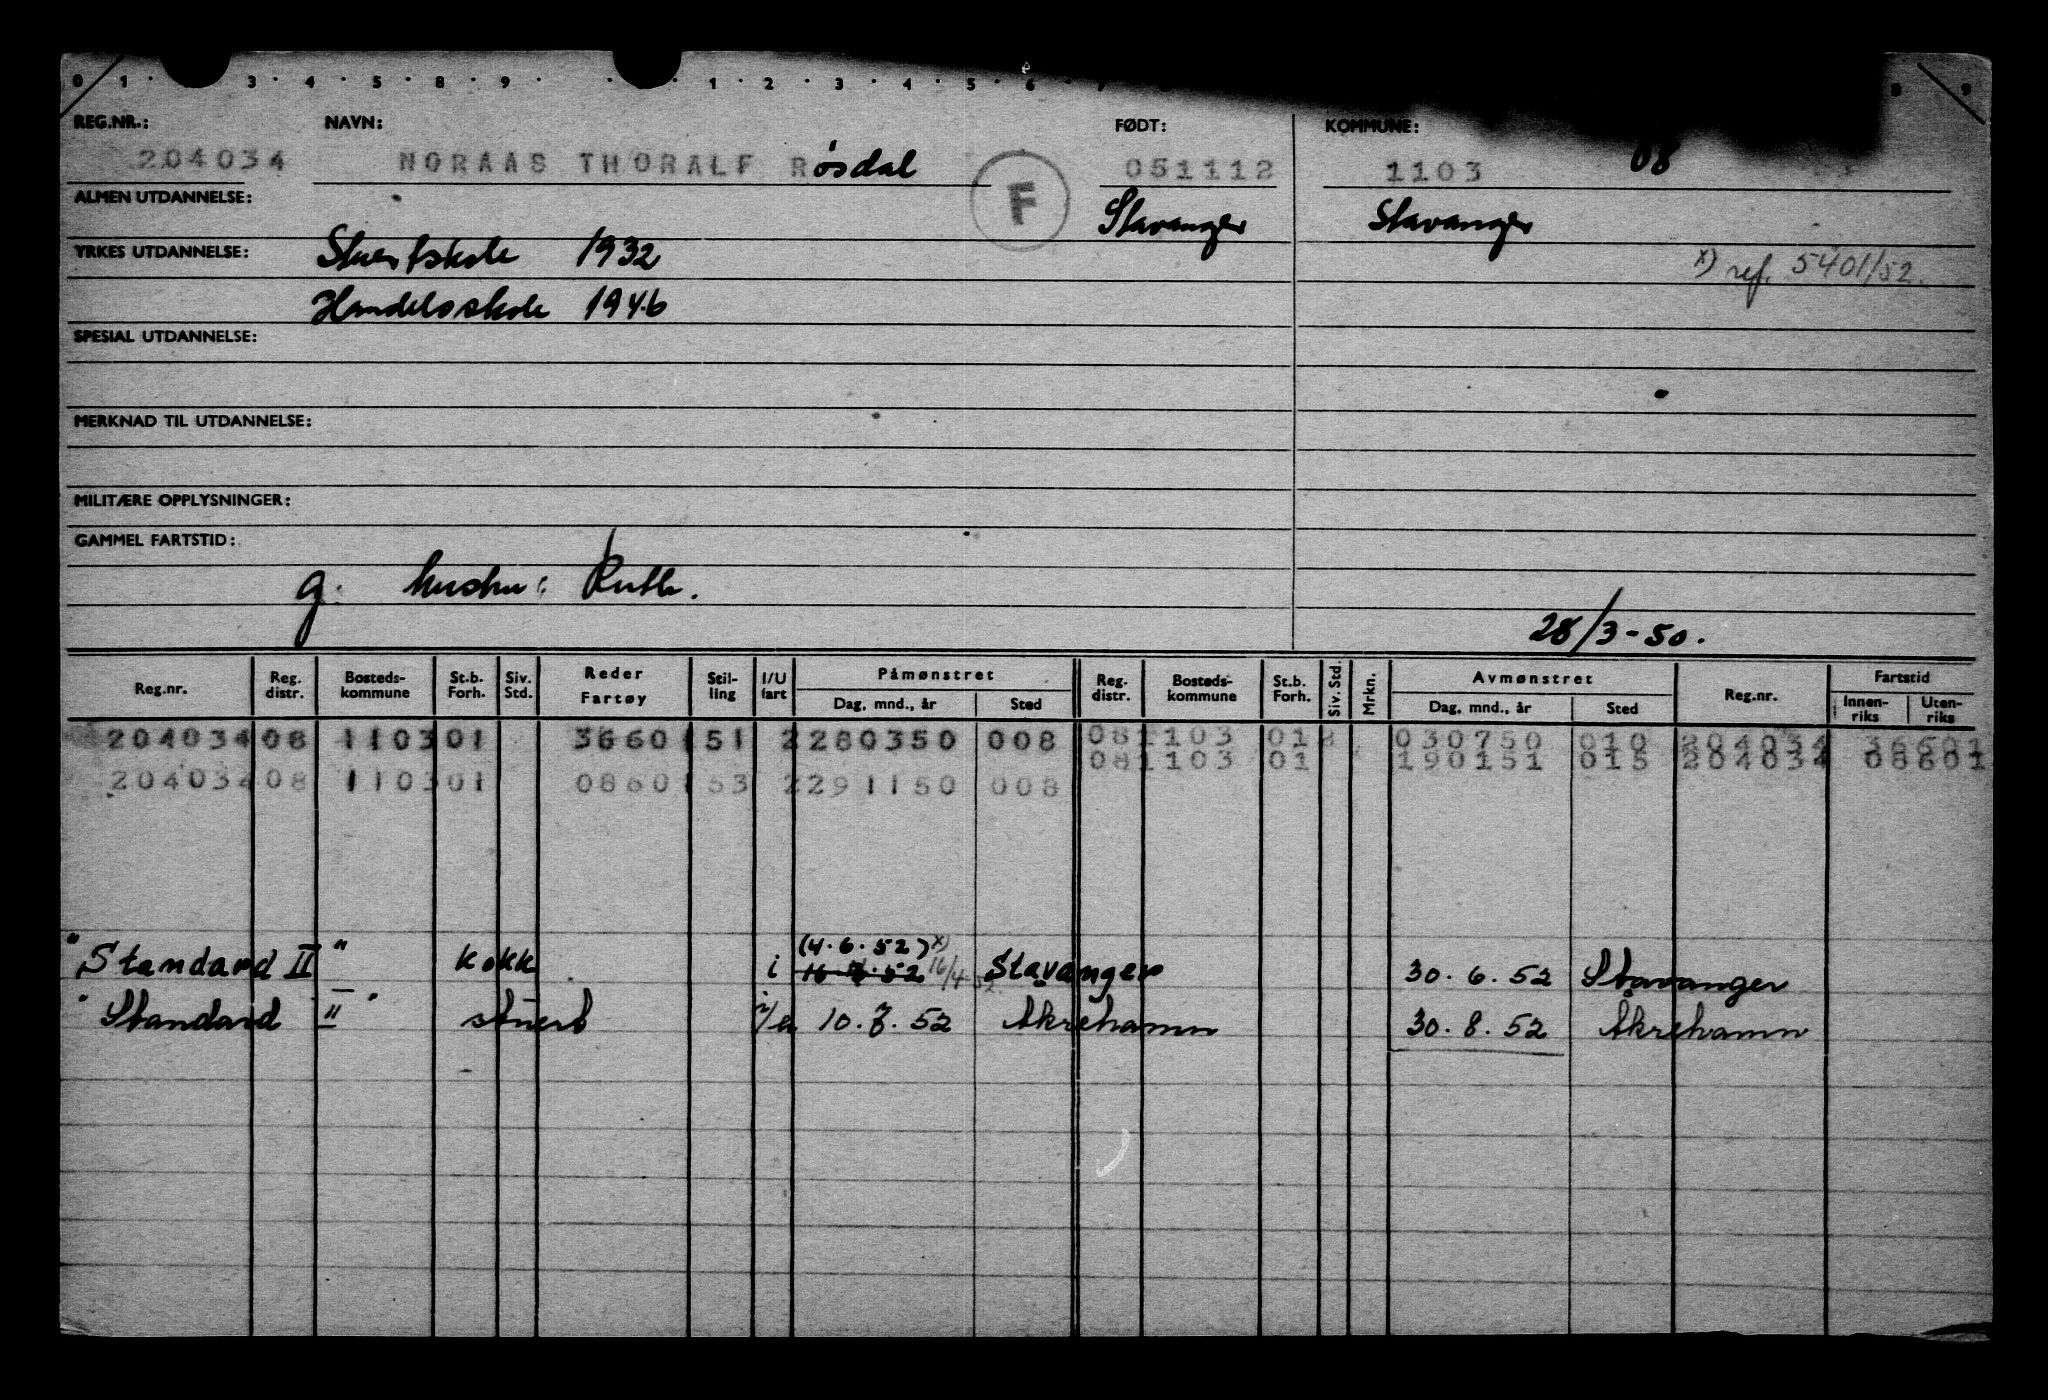 0 1 · 3 · 4 · 5 · 8 · 9 · · 1 · 2 · 3 · 4 · 5 · 6 · 7 8 9
REG.NR.: NAVN: FØDT: KOMMUNE:
204034 NORAAS THORALF Røsdal F 051112 1103 08
ALMEN UTDANNELSE: Stavanger Stavanger
YRKES UTDANNELSE: Stuertskole 1932 x) ref. 5401/52.
Handelsskole 1946
SPESIAL UTDANNELSE:
MERKNAD TIL UTDANNELSE:
MILITÆRE OPPLYSNINGER:
GAMMEL FARTSTID:
g. hustru: Ruth.
28/3-50.
Reg.nr. Reg. distr. Bosteds-kommune St.b. Forh. Siv. Std. Reder Fartøy Stil-ling I/U fart Påmønstret Dag, mnd., år Sted Reg. distr. Bosteds-kommune St.b. Forh. Siv. Std. Mrkn. Avmønstret Dag, mnd., år Sted Reg.nr. Fartstid Innen-riks Uten-riks
204034 08 1103 01 3660 151 2 280350 008 08 1103 01 030750 010 204034 36601
08 1103 01 190151 015 204034 08601
204034 08 1103 01 0860 153 2 291150 008
(4.6.52) x)
"Standard II" kokk i 16/4-52 Stavanger 30.6.52 Stavanger
"Standard II" stuert i/u 10.7.52 Åkrehamn 30.8.52 Åkrehamn